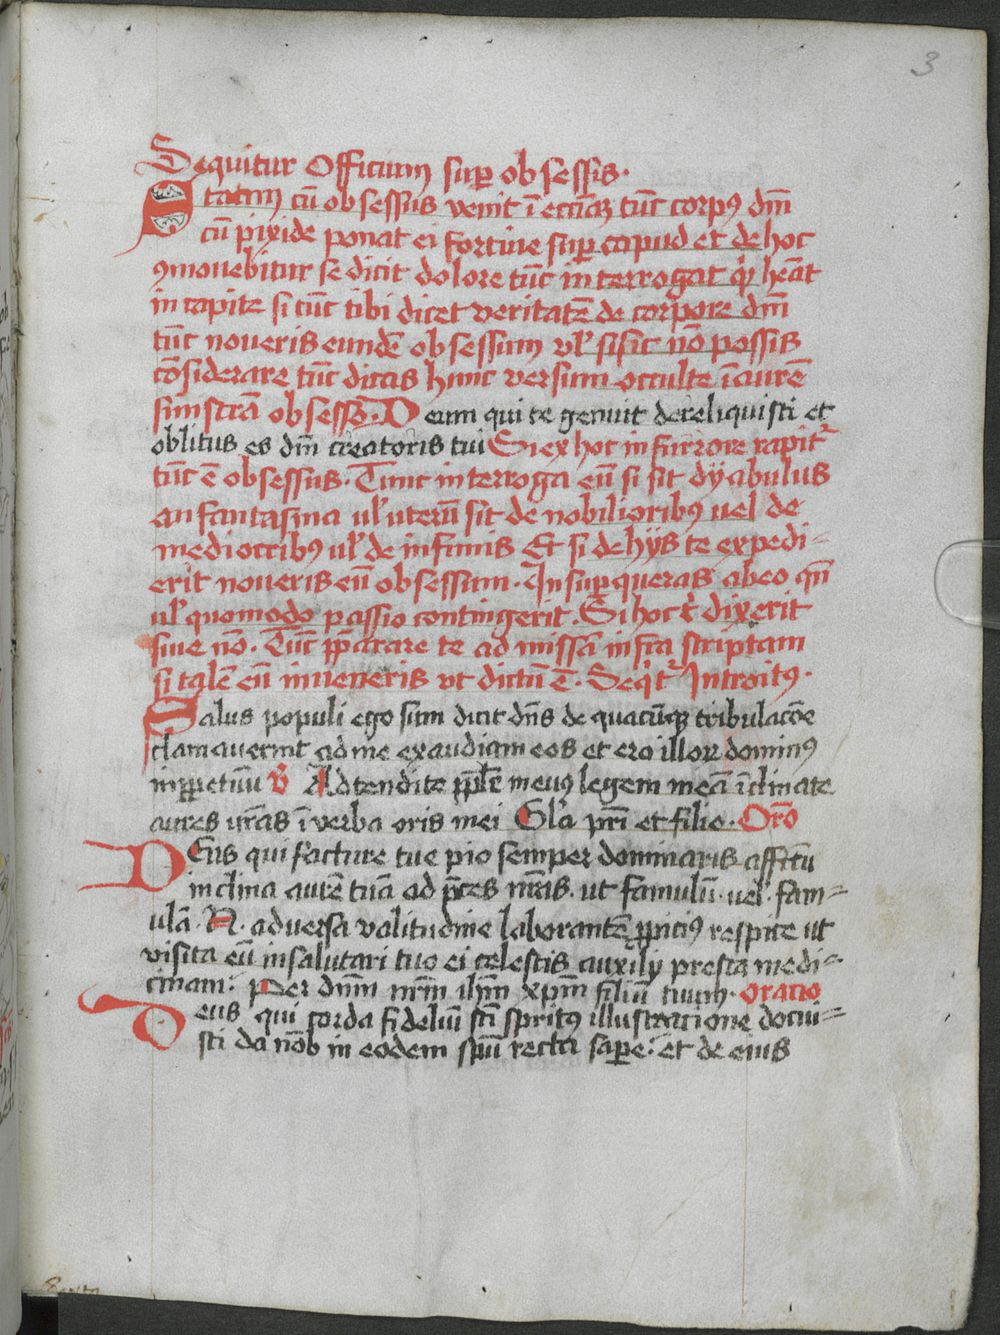 3
Sequitur Officium sup̱ obsessis·
Statim cū obsessus venit ī eccīaꝫ tūc corpꝰ dm̄
cū pixide ponat ei fortiue sup̱ capud et de hoc
ꝯmouebitur se dicit dolore tūc interrogat qͥd heāt
in capite si tūc tibi dicet veritatē de corpore dm̄
tūc noueris eundē obsessum vl' si sic nō possis
cōsiderare tūc dicas hunc versum occulte ī aurē
sinistrā obsesso· Deum qui te genuit dereliquisti et
oblitus es dm̄ creatoris tui Si ex hoc in furrore rapit᷑
tūc ē obsessus· Tunc interroga eū si sit dyabulus
an fantasma vl' uterū sit de nobilioribꝰ uel de
mediocribꝰ ul' de infimis Et si de hijs te expedi-
erit noueris eū obsessum· Insup̱ queras abeo qn̄
ul' quomodo passio contingerit· Si hoc t' dixerit
siue nō· Tūc p̱parare te ad missā infra scriptam
si talē eū inueneris vt dictū ē· Seqͥt᷑ Introitꝰ·
Salus populi ego sum dicit dn̄s de quacūqꝫ tribulacōe
clamauerint ad me exaudiam eos et ero illoꝝ dominꝰ
inp̱petuū v̄ Adtendite pp̱lē meus legem meā īclinate
aures urās ī verba oris mei Gl'a pr̄i et filio· Orō
Deus qui facture tue pio semper dominaris affc̄tu
inclina aurē tuā ad p̄ces nr̄as· ut famulū· uel· fam-
ulā· N· aduersa valitudine laborantē p̱piciꝰ respice ut
visita eū in salutari tuo ei celestis auxilij presta medi-
cinam· per dn̄m nr̄m ih̄m xp̄m filiū tuum· Oracio
Deus qui corda fidelium sc̄ti spiritꝰ illustracione docui-
sti da nōb in eodem spū recta sap̱e· et de eius